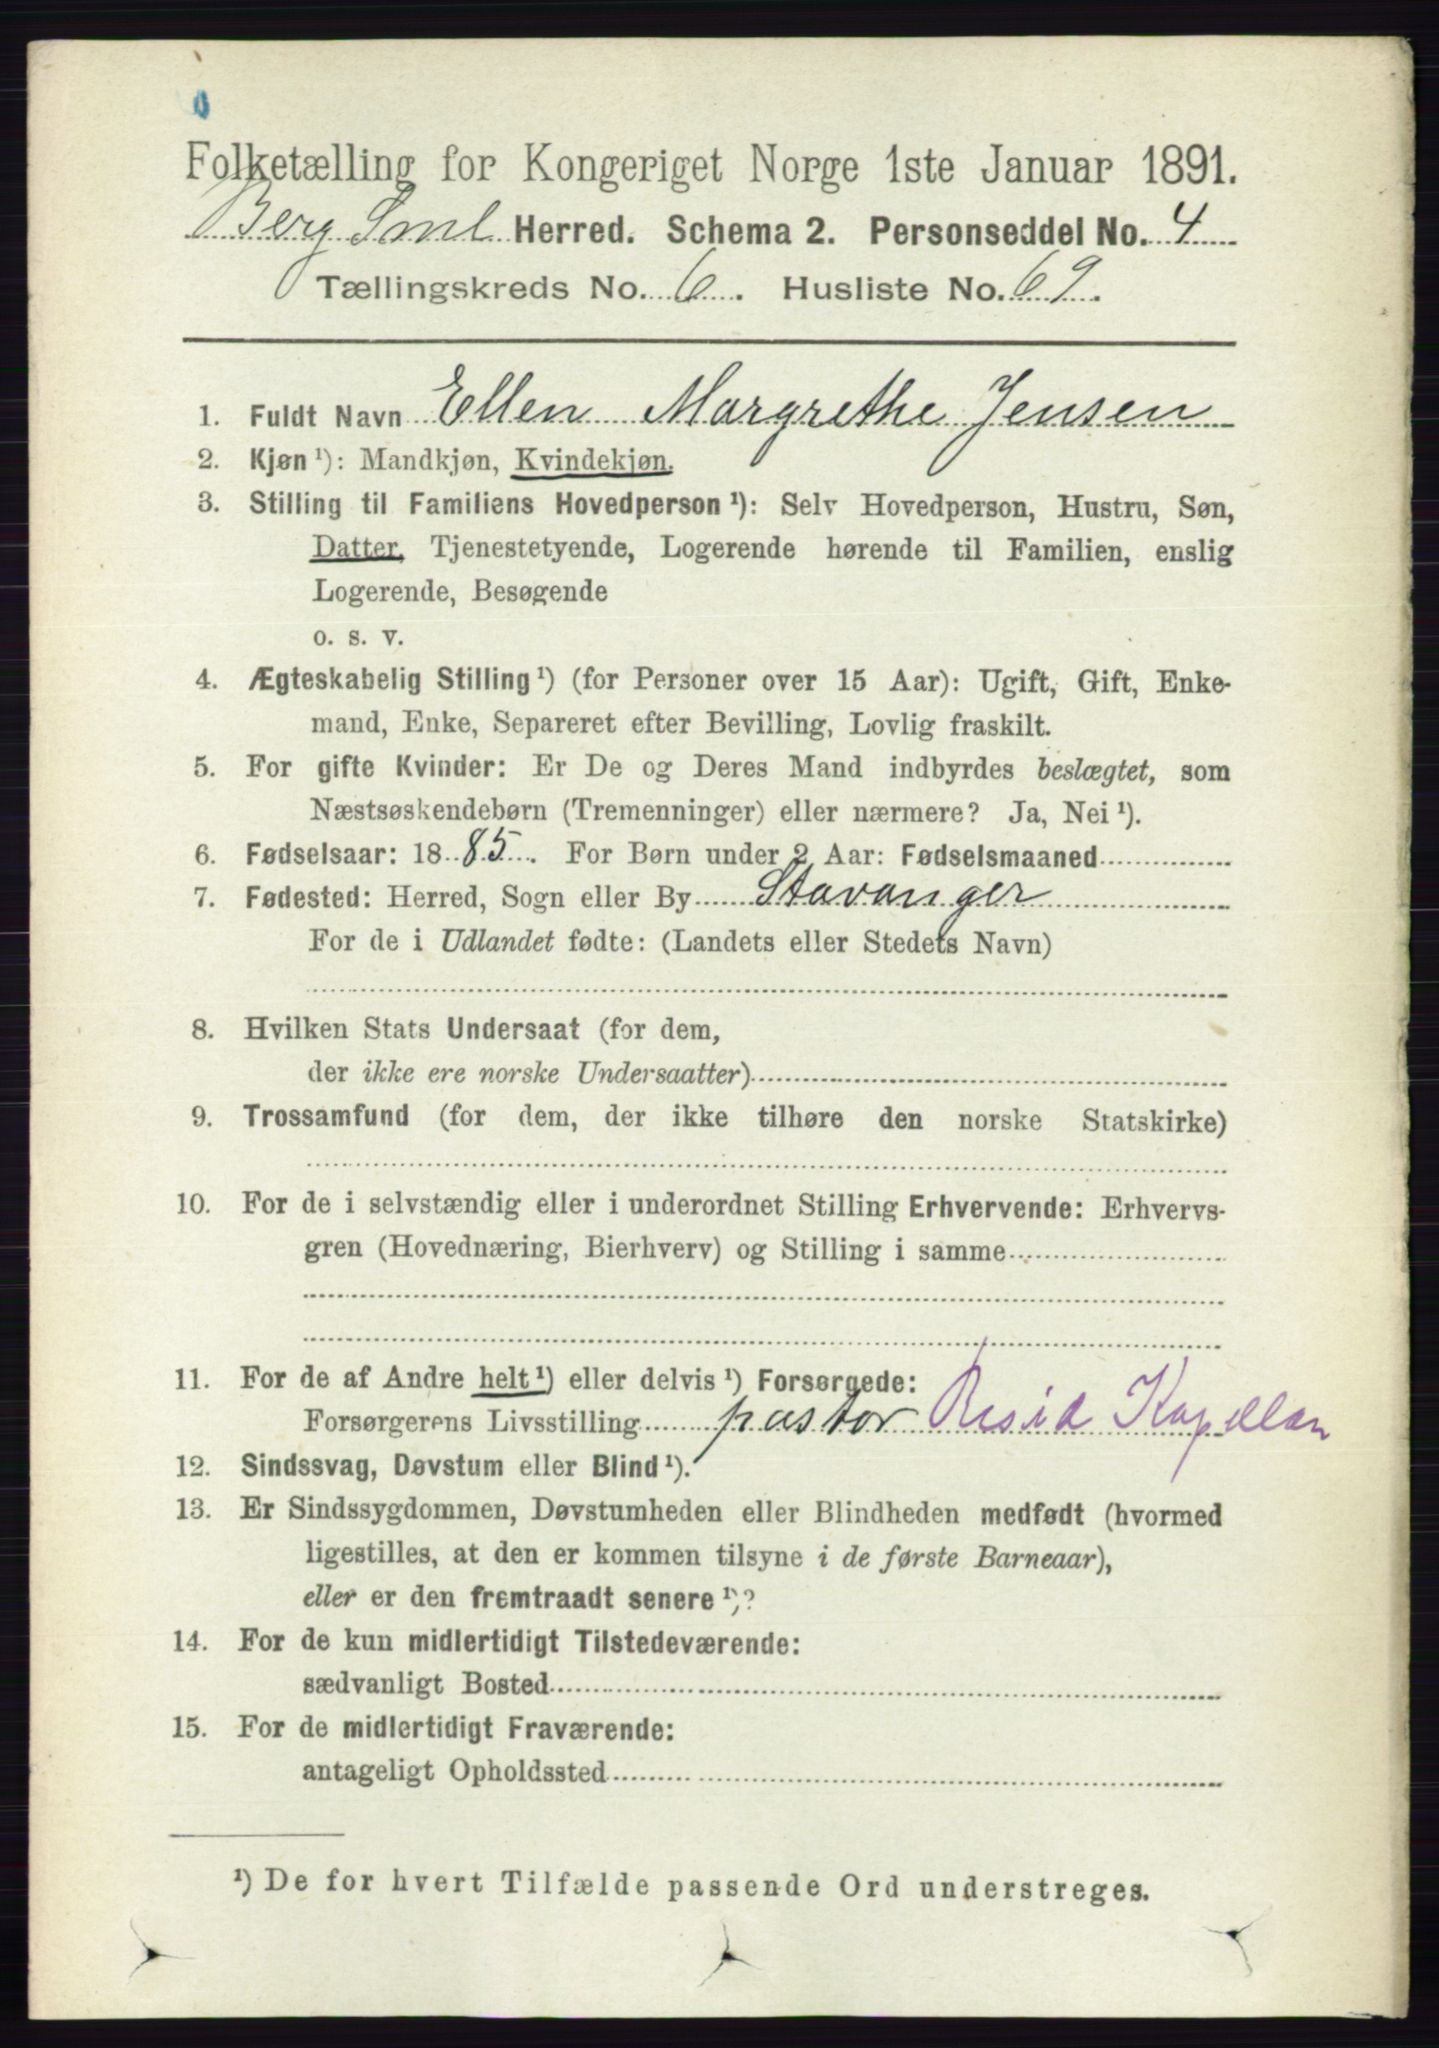 Folketælling for Kongeriget Norge 1ste Januar 1891.
Berg Sml Herred. Schema 2. Personseddel No. 4
Tællingskreds No. 6. Husliste No. 69.
1. Fuldt Navn Ellen Margrethe Jensen
2. Kjøn ¹): Mandkjøn, Kvindekjøn.
3. Stilling til Familiens Hovedperson ¹): Selv Hovedperson, Hustru, Søn,
Datter, Tjenestetyende, Logerende hørende til Familien, enslig
Logerende, Besøgende
o. s. v.
4. Ægteskabelig Stilling ¹) (for Personer over 15 Aar): Ugift, Gift, Enke-
mand, Enke, Separeret efter Bevilling, Lovlig fraskilt.
5. For gifte Kvinder: Er De og Deres Mand indbyrdes beslægtet, som
Næstsøskendebørn (Tremenninger) eller nærmere? Ja, Nei ¹).
6. Fødselsaar: 1885. For Børn under 2 Aar: Fødselsmaaned
7. Fødested: Herred, Sogn eller By Stavanger
For de i Udlandet fødte: (Landets eller Stedets Navn)
8. Hvilken Stats Undersaat (for dem,
der ikke ere norske Undersaatter)
9. Trossamfund (for dem, der ikke tilhøre den norske Statskirke)
10. For de i selvstændig eller i underordnet Stilling Erhvervende: Erhvervs-
gren (Hovednæring, Bierhverv) og Stilling i samme
11. For de af Andre helt ¹) eller delvis ¹) Forsørgede:
Forsørgerens Livsstilling pastor Resid Kapellan
12. Sindssvag, Døvstum eller Blind ¹).
13. Er Sindssygdommen, Døvstumheden eller Blindheden medfødt (hvormed
ligestilles, at den er kommen tilsyne i de første Barneaar),
eller er den fremtraadt senere ¹)?
14. For de kun midlertidigt Tilstedeværende:
sædvanligt Bosted
15. For de midlertidigt Fraværende:
antageligt Opholdssted
¹) De for hvert Tilfælde passende Ord understreges.